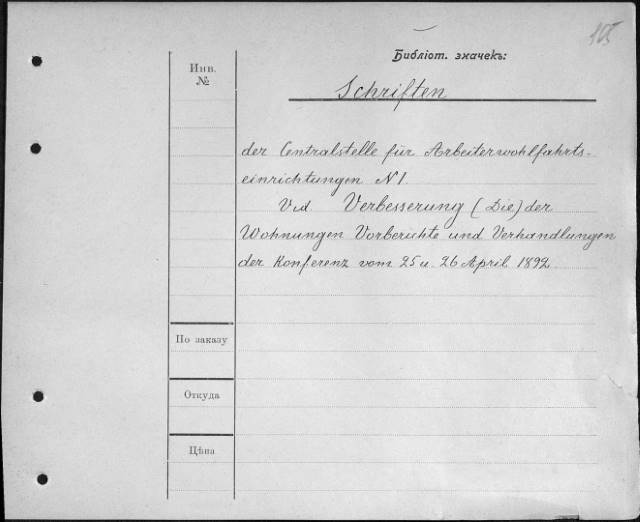 105
Библіот. значекъ:
Инв.
№
Schriften
der Centralstelle für Arbeiterwohlfahrts-
einrichtungen N 1.
Vid. Verbesserung (Die) der
Wohnungen Vorberichte und Verhandlungen
der Konferenz vom 25 u. 26 April 1892.
По заказу
Откуда
Цѣна